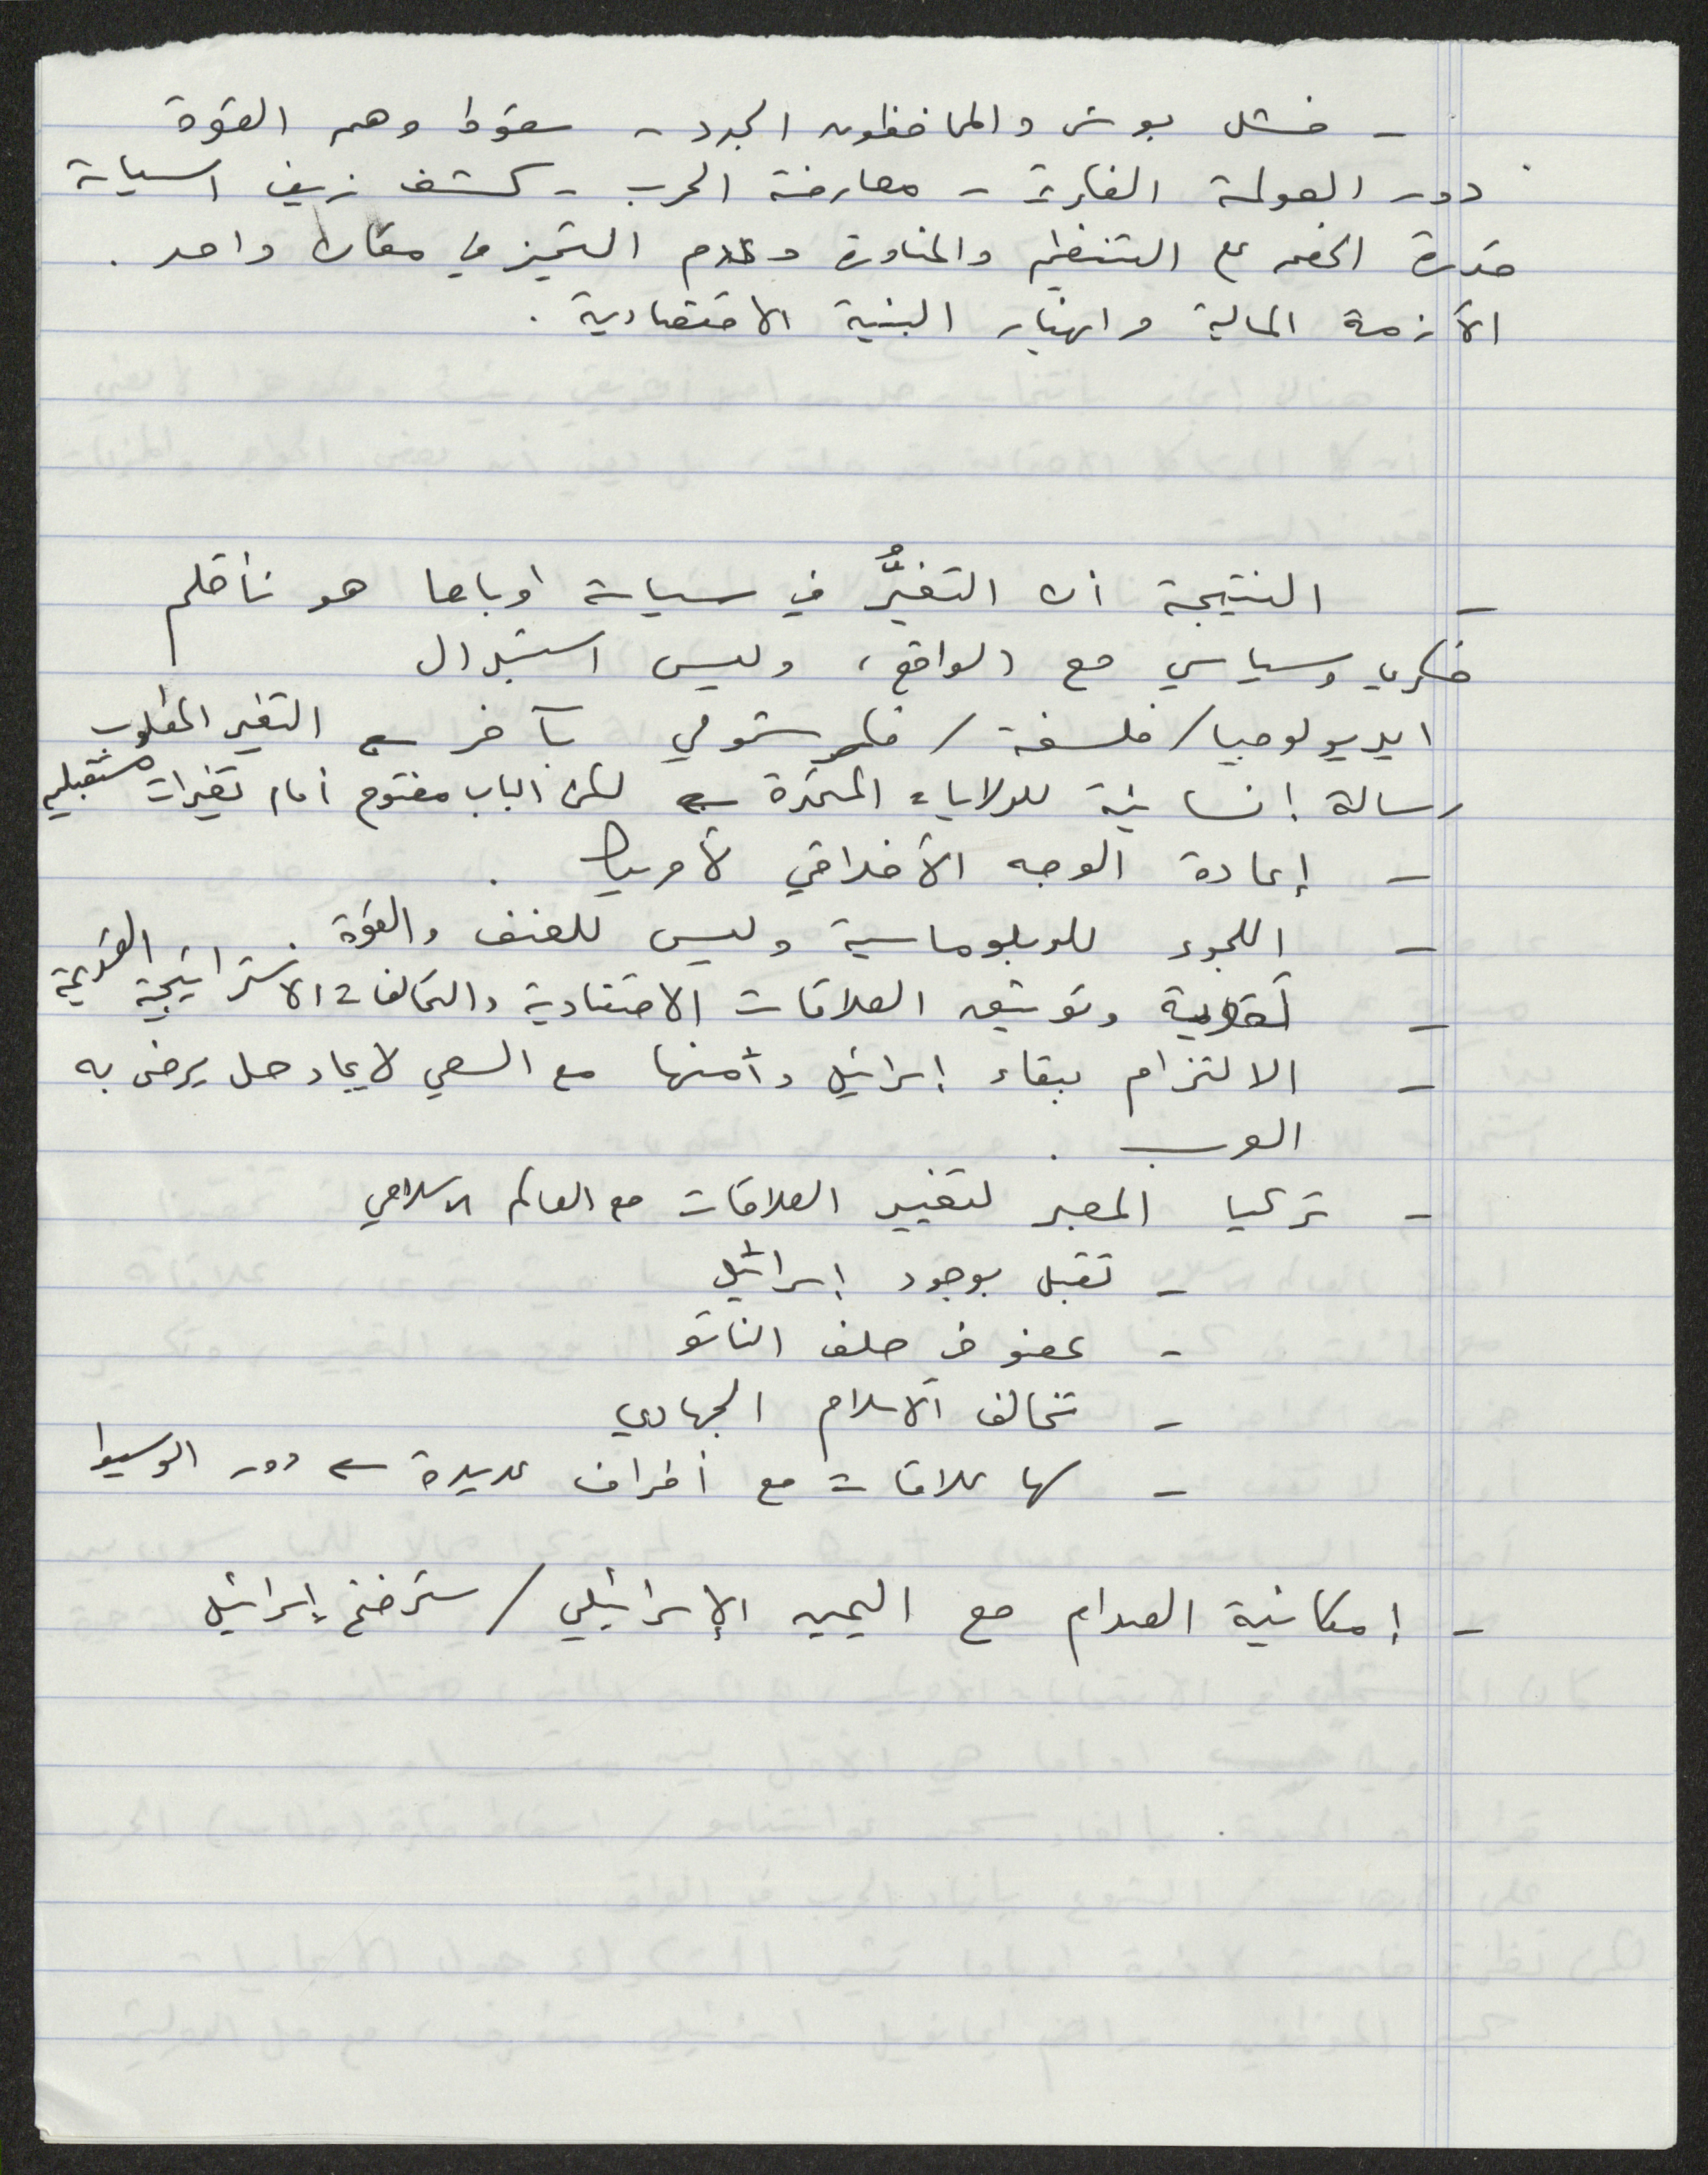 - فشل بوش والمحافظون الجدد - سقوط وهم القوة
دور العولمة الفكرية - معارضة الحرب - كشف زيف السياسة
قدرة الخصم على التنظيم والمناورة وعدم التميز في مكان واحد .
الأزمة المالية وانهيار البنية الاقتصادية .
- النتيجة أن التغيُّر في سياسة اوباما هو تأقلم
فكري وسياسي مع الواقع، وليس استبدال
ايديولوجيا/فلسفة/فكر شمولي بآخر ← التغير المطلوب
رسالة إنسانية للولايات المتحدة ← لكن الباب مفتوح أمام تغيرات مستقبلية
- إعادة الوجه الأخلاقي لأمريكا .
- اللجوء للدبلوماسية وليس للعنف والقوة .
- تقوية وتوثيق العلاقات الاقتصادية والتحالفات الاستراتيجية القديمة
- الالتزام ببقاء إسرائيل وأمنها مع السعي لايجاد حل يرضى به
العرب .
- تركيا المعبر لتغيير العلاقات مع العالم الاسلامي
- تقبل بوجود إسرائيل
- عضو في حلف الناتو
- تخالف الاسلام الجهادي
- لها علاقات مع أطراف عديدة ← دور الوسيط
- إمكانية الصدام مع اليمين الإسرائيلي/سترضخ إسرائيل